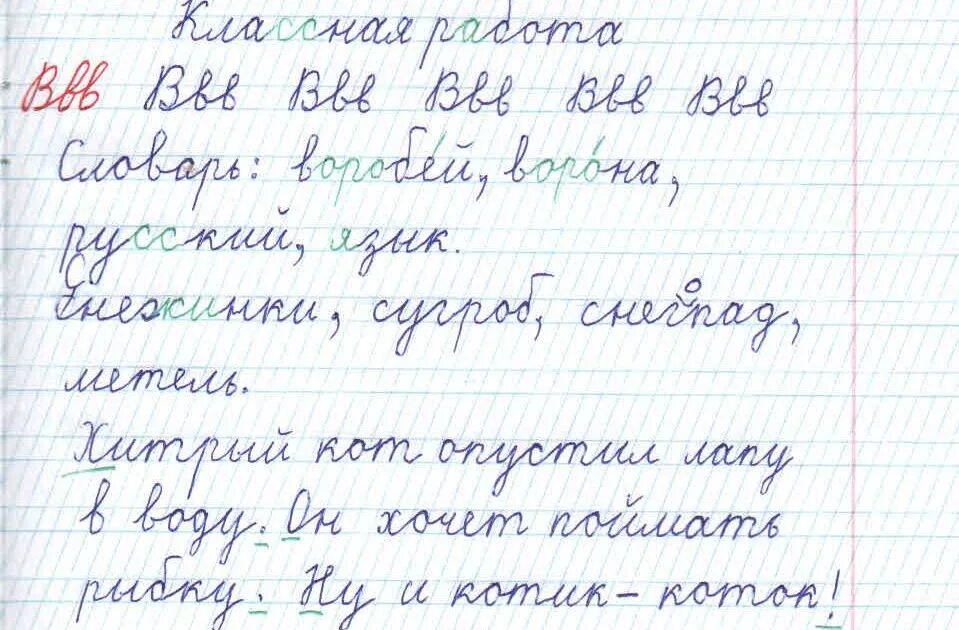 Классная работа
Ввв Ввв Ввв Ввв Ввв Ввв
Словарь: воробе́й, воро́на,
русский, язык.
Снежинки, сугроб, снегопад,
метель.
Хитрый кот опустил лапу
в воду. Он хочет поймать
рыбку. Ну и котик – коток!